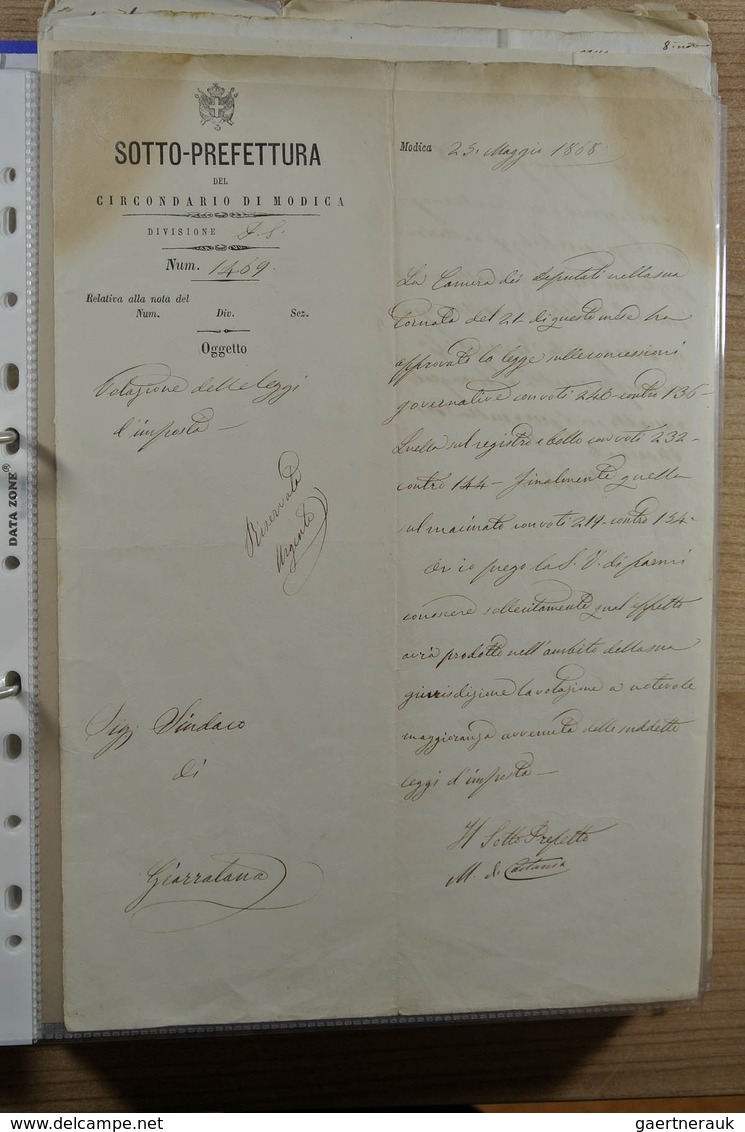 SOTTO-PREFETTURA
DEL
CIRCONDARIO DI MODICA
DIVISIONE P. S.
Num. 1469.
Relativa alla nota del
Num. Div. Sez.
Oggetto
Votazione delle leggi
d'imposta —
Riservata
Urgente
Sig. Sindaco
di
Giarratana
Modica 25. Maggio 1868
La Camera dei Deputati nella sua
tornata del 21 di questo mese ha
approvato la legge sulle concessioni
governative con voti 240 contro 136 –
Quella sul registro e bollo con voti 232 –
contro 144 – finalmente quella
sul macinato con voti 219 contro 134 –
Or io prego la S. V. di farmi
conoscere sollecitamente qual effetto
avrà prodotto nell'ambito della sua
giurisdizione la votazione a notevole
maggioranza avvenuta delle suddette
leggi d'imposta —
Il Sotto Prefetto
M. di
DATA ZONE®
gaertnerauk
gaertnerauk